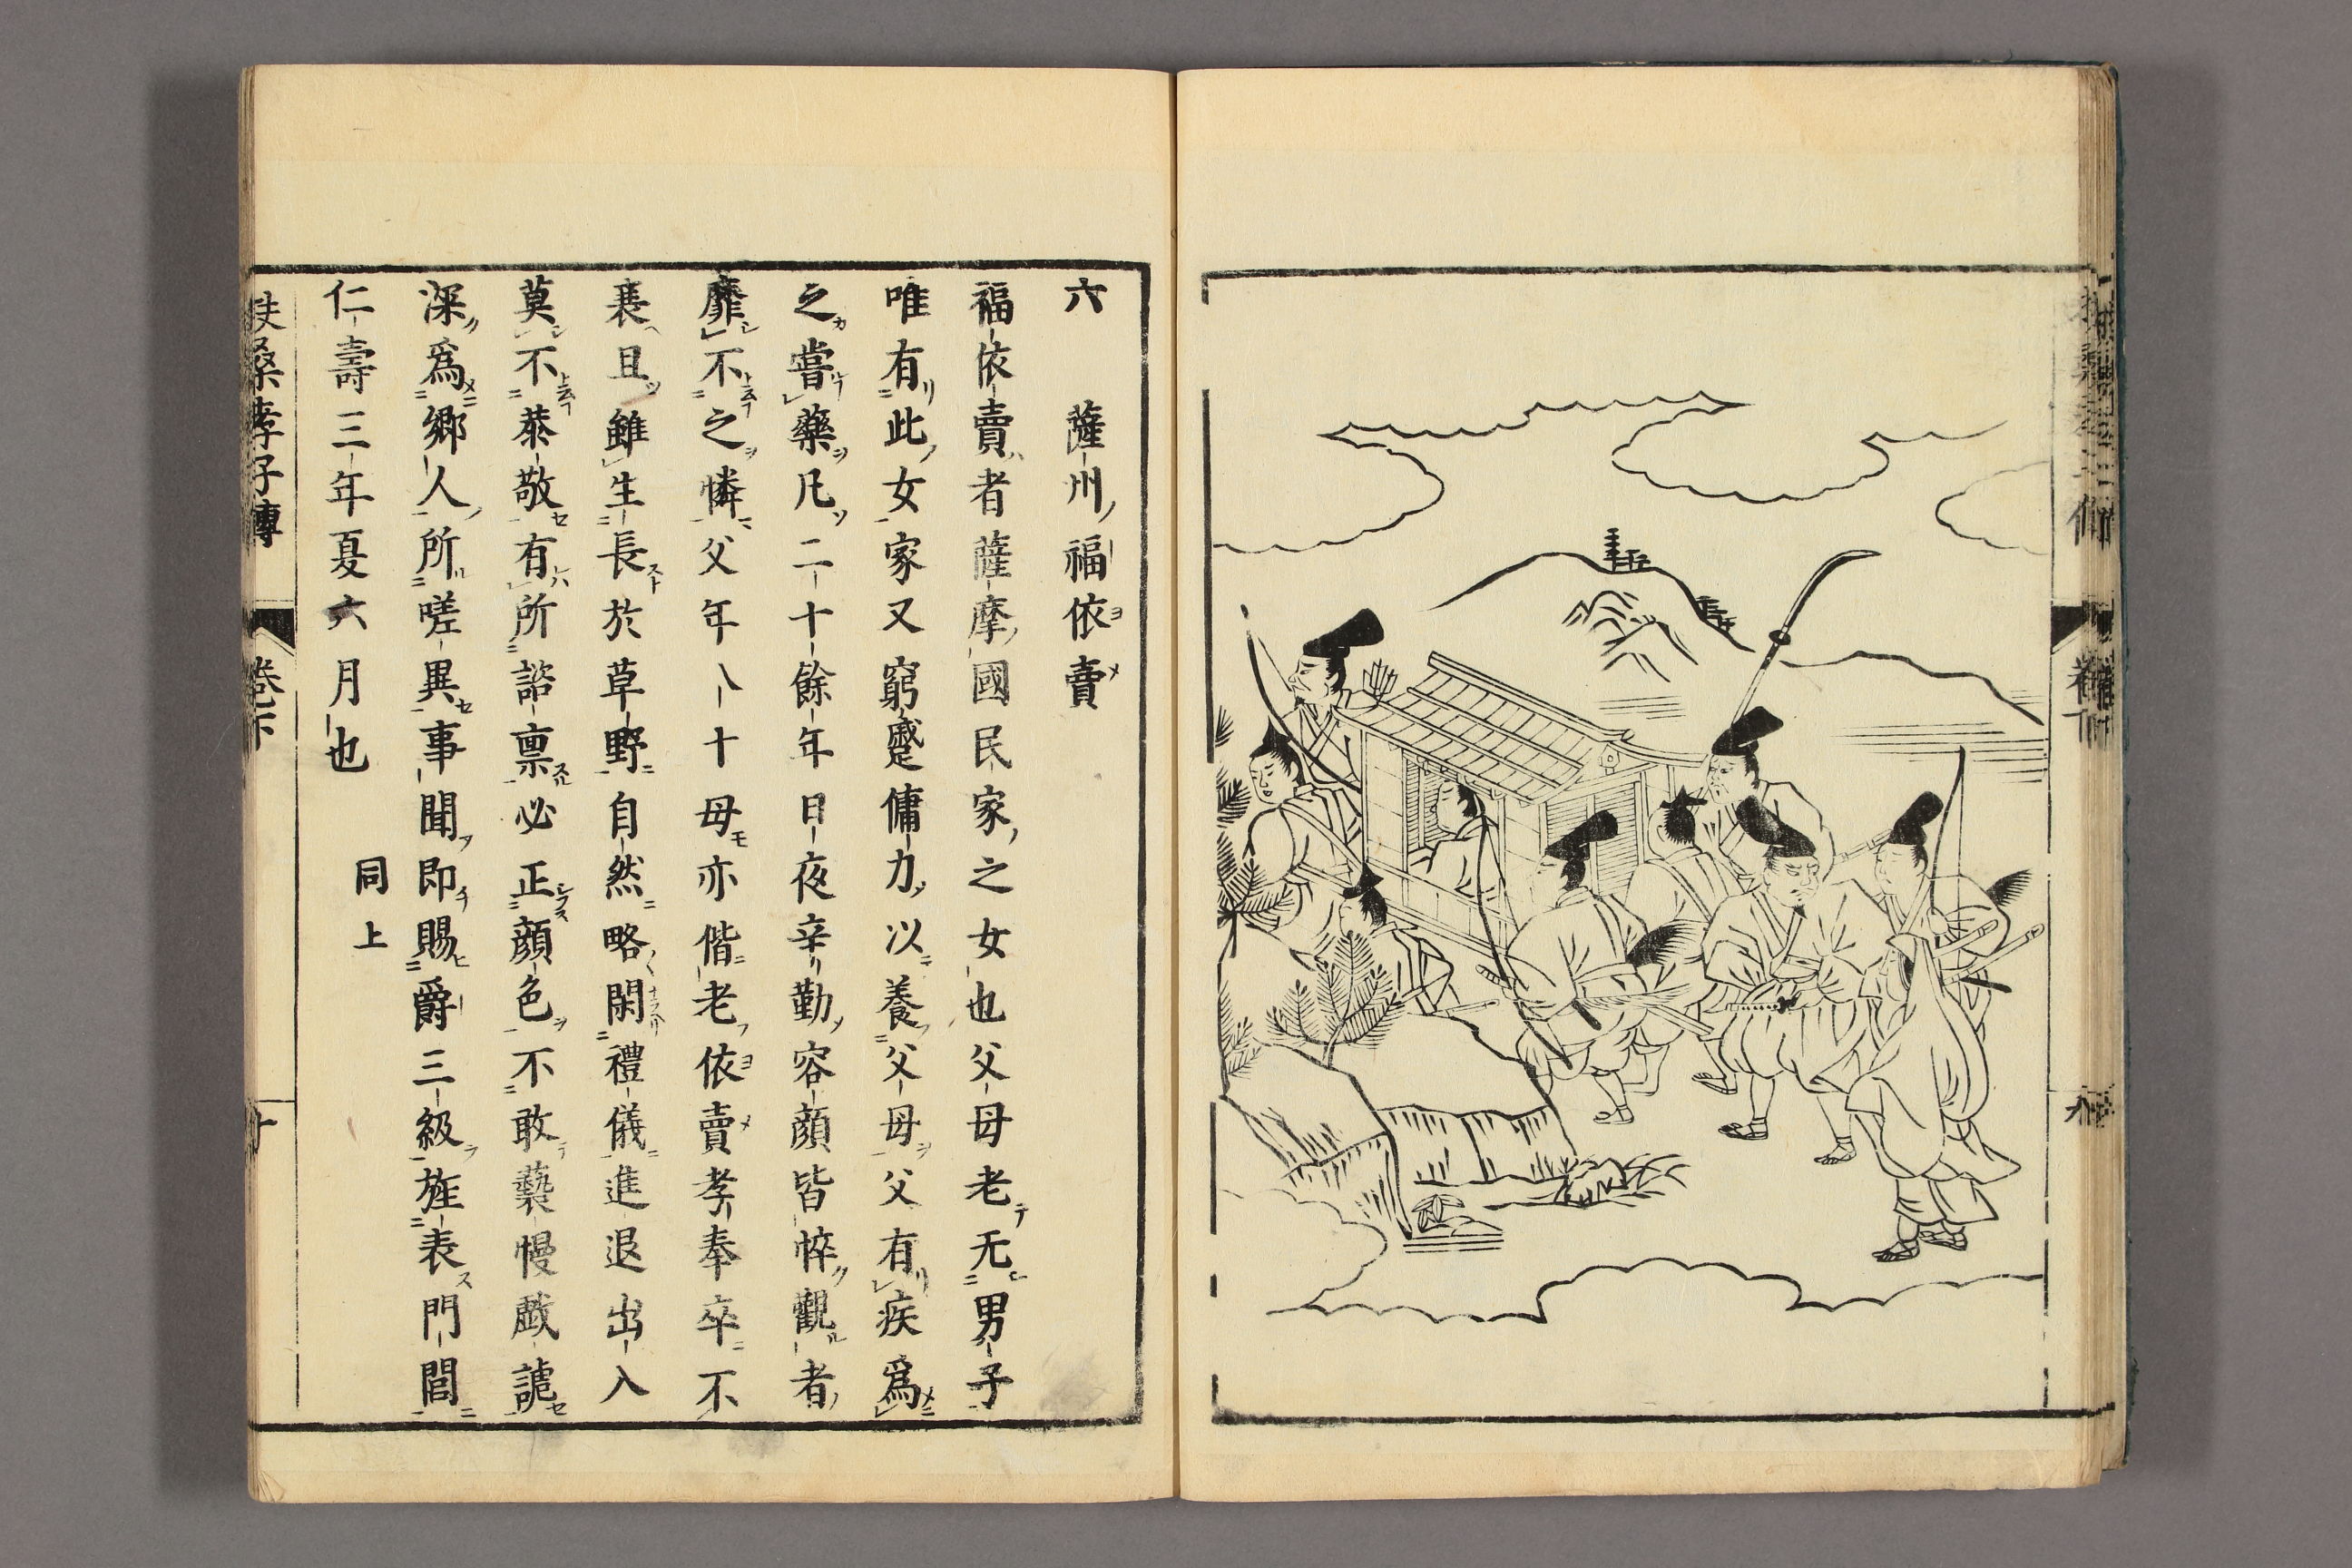 六 薩州福依賣
福依賣者薩摩國民家之女也父母老无男子
唯有此女家又窮蹙傭力以養父母父有疾爲
之嘗藥凡二十餘年日夜辛勤容顔皆悴觀者
靡不之憐父年八十母亦偕老依賣孝奉卒不
衰且雖生長於草野自然略閑禮儀進退出入
莫不恭敬有所諮禀必正顔色不敢褻慢戲謔
深爲郷人所嗟異事聞即賜爵三級旌表門閭
仁壽三年夏六月也 同上
扶桑孝子傳 卷下 十